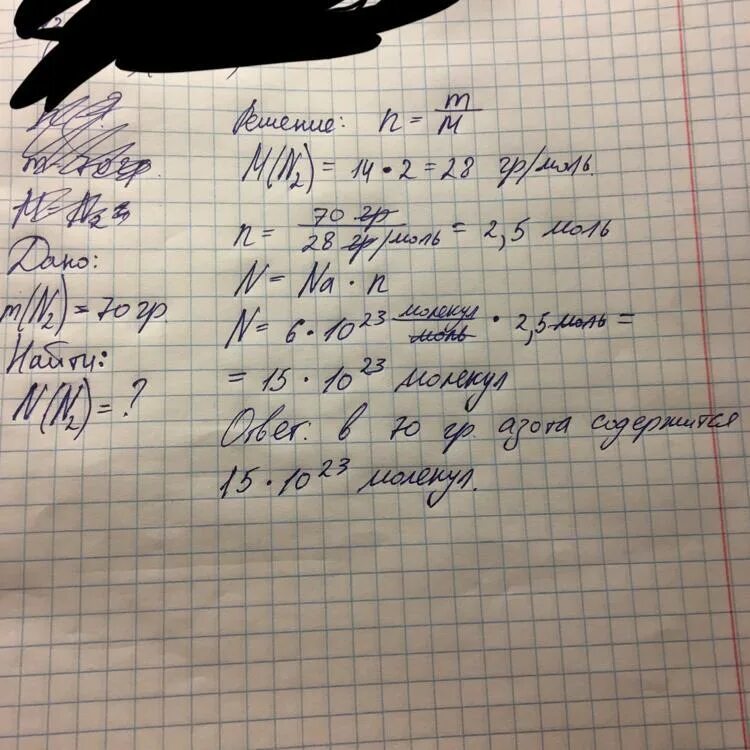 Дано:
m(N₂) = 70 гр.
Найти:
N(N₂) = ?
Решение: n = m/M
M(N₂) = 14 • 2 = 28 гр/моль.
n = 70 гр / 28 гр/моль = 2,5 моль
N = Na • n
N = 6 • 10²³ молекул/моль • 2,5 моль =
= 15 • 10²³ молекул
Ответ: в 70 гр. азота содержится
15 • 10²³ молекул.